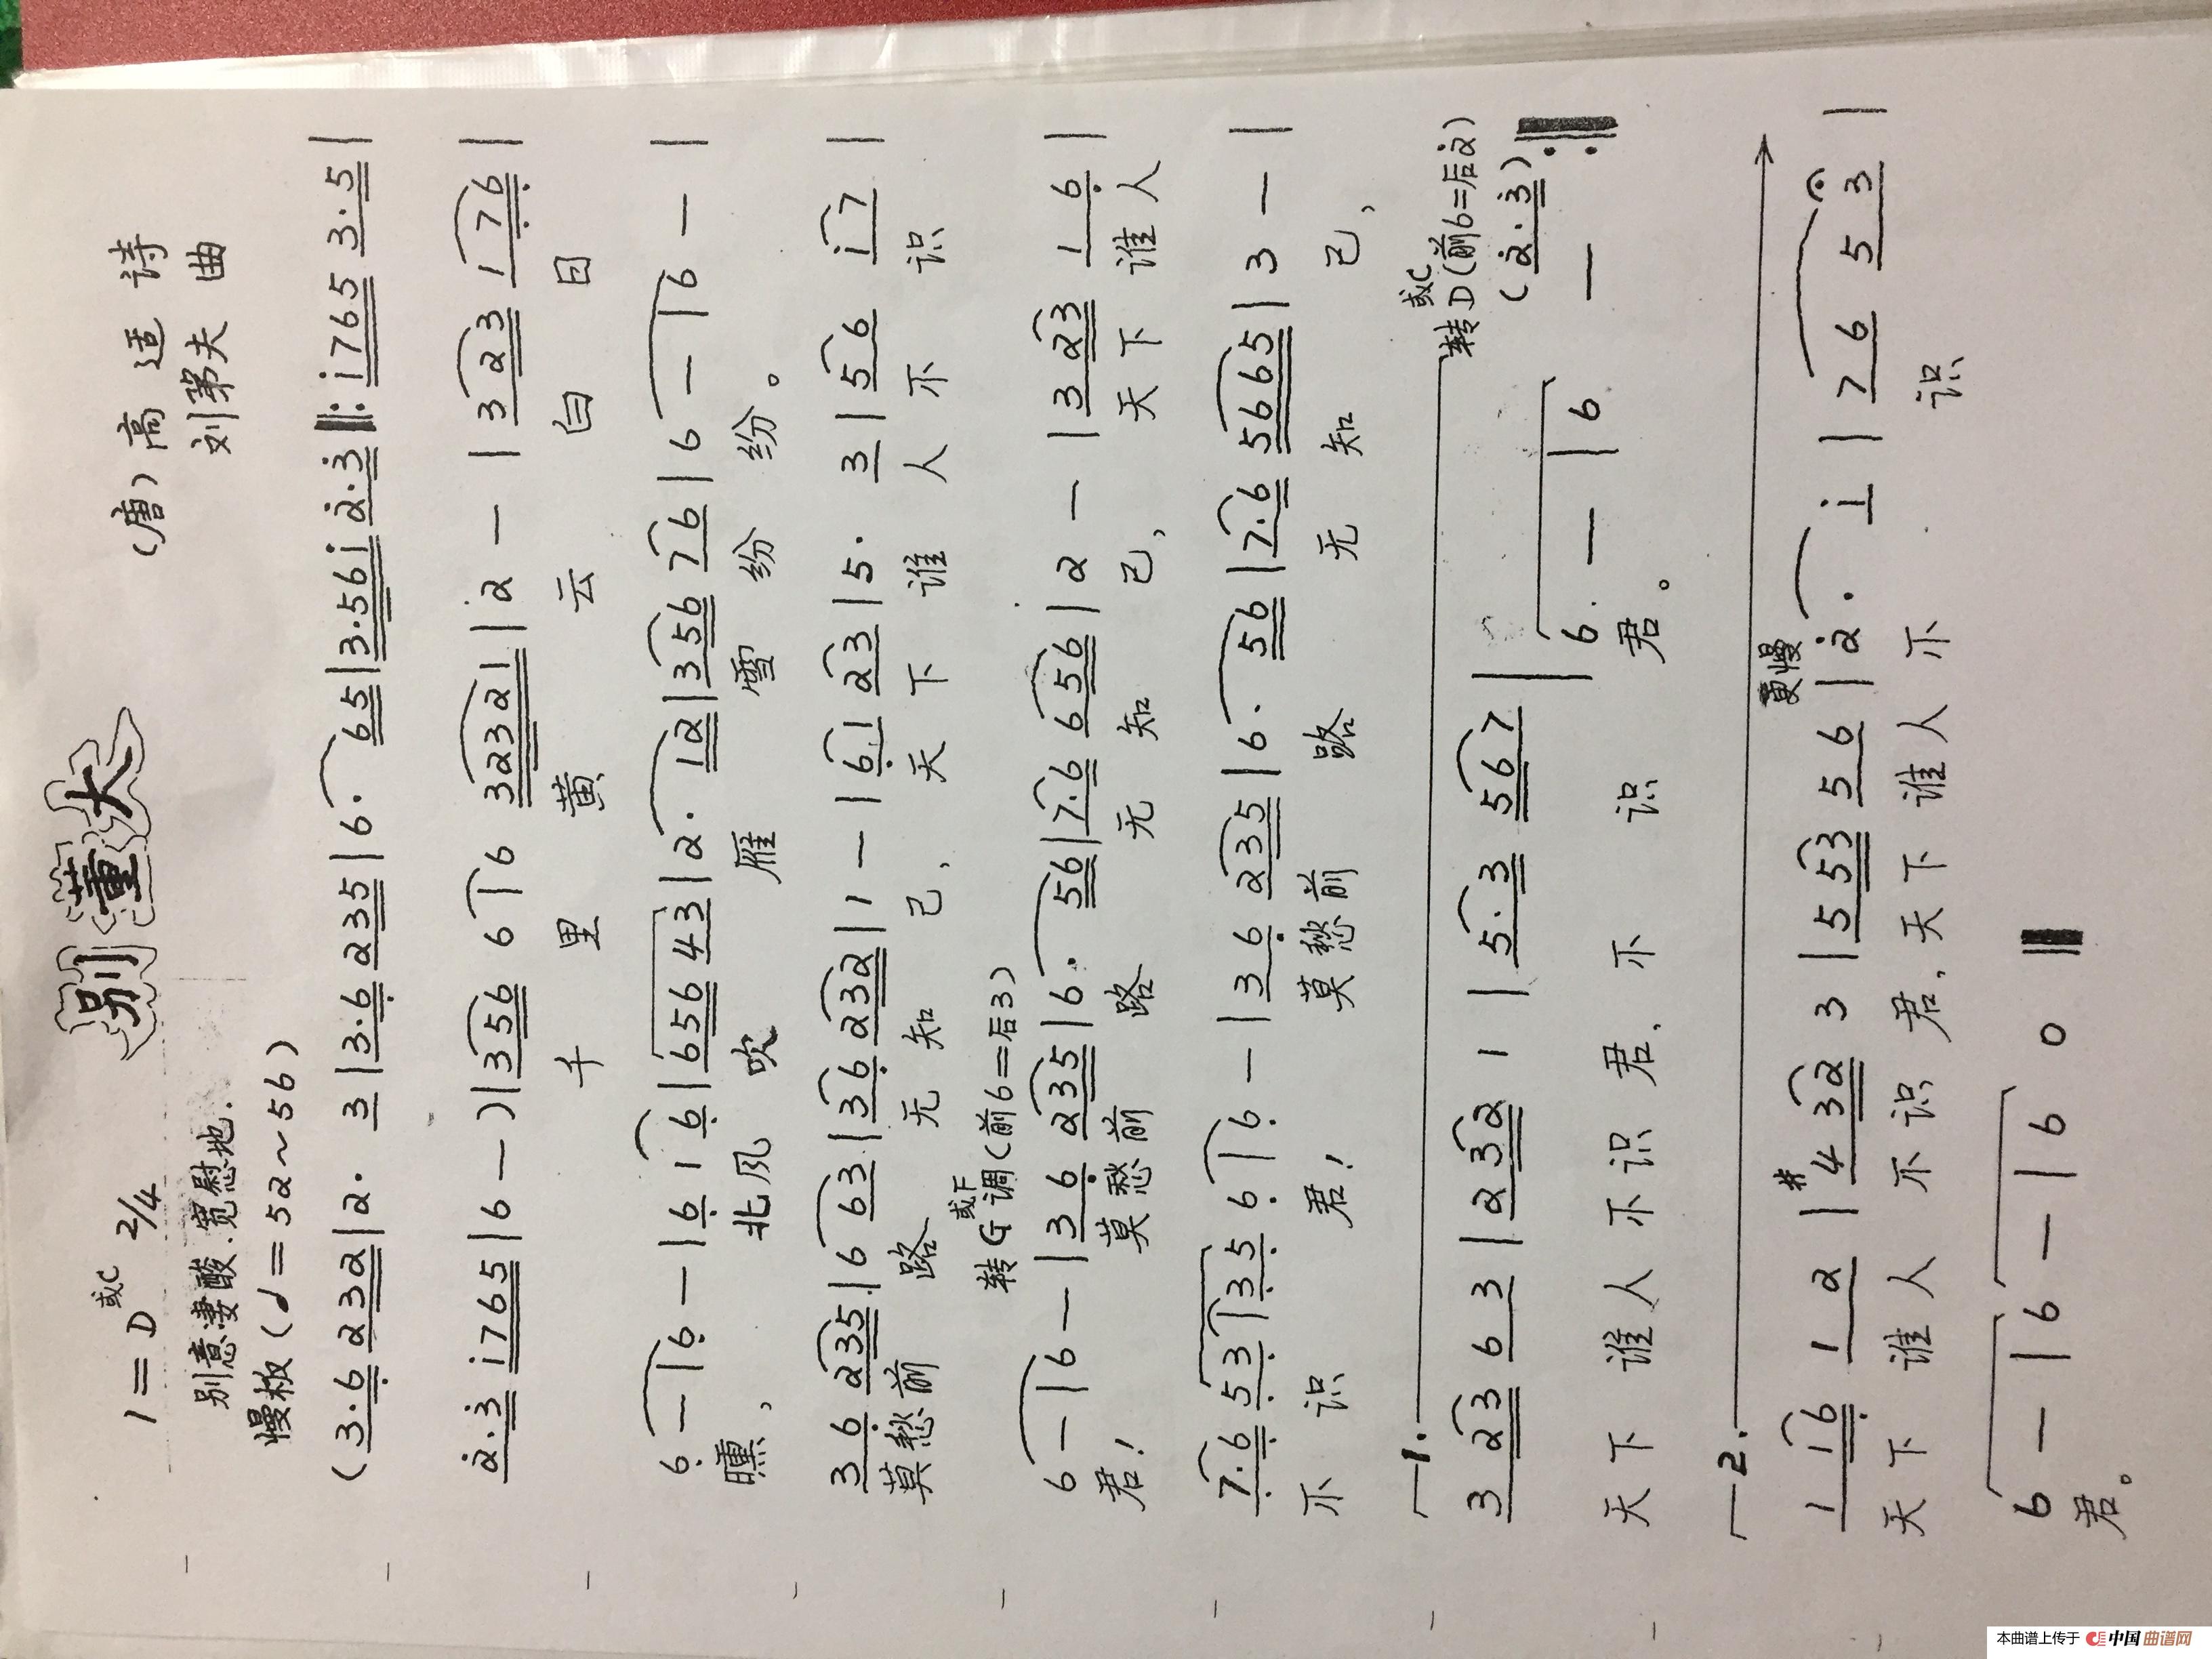 别董大
1=D或C 2/4
(唐)高适 诗
别意凄酸.宽慰地.
刘第夫 曲
慢板(♩=52~56)
(3·6 235|2· 3|3·6 235|6· 65|3·56i 2·3‖:i765 3·5|
2·3 i765|6 -)|356 6|6 32321|2 -|323 176|
千 里 黄 云 白 日
6 -|6 -|6 16|656 43|2· 12|356 76|6 -|6 -|
曛, 北风 吹 雁 雪 纷 纷。
36 235|6 63|36 232|1 -|61 23|5· 3|56 i7|
莫愁前 路 无 知 己, 天 下 谁 人 不 识
转G或F调(前6=后3)
6 -|6 -|36 235|6· 56|7·6 656|2 -|323 16|
君! 莫愁前 路 无 知 己, 天下谁人
7·6 53|35 6|6 -|36 235|6· 56|7·6 5665|3 -|
不 识 君! 莫愁前 路 无 知 己,
1. 转D或C(前6=后2)
323 63|232 1|5·3 567|6 -|6 - (2·3):‖
天下谁人不识君, 不 识 君。
2. 更慢
116 12|#432 3|553 56|2· i|76 53|
天下谁人不识君,天下谁人不 识
6 -|6 -|6 0‖
君。
本曲谱上传于 中国曲谱网